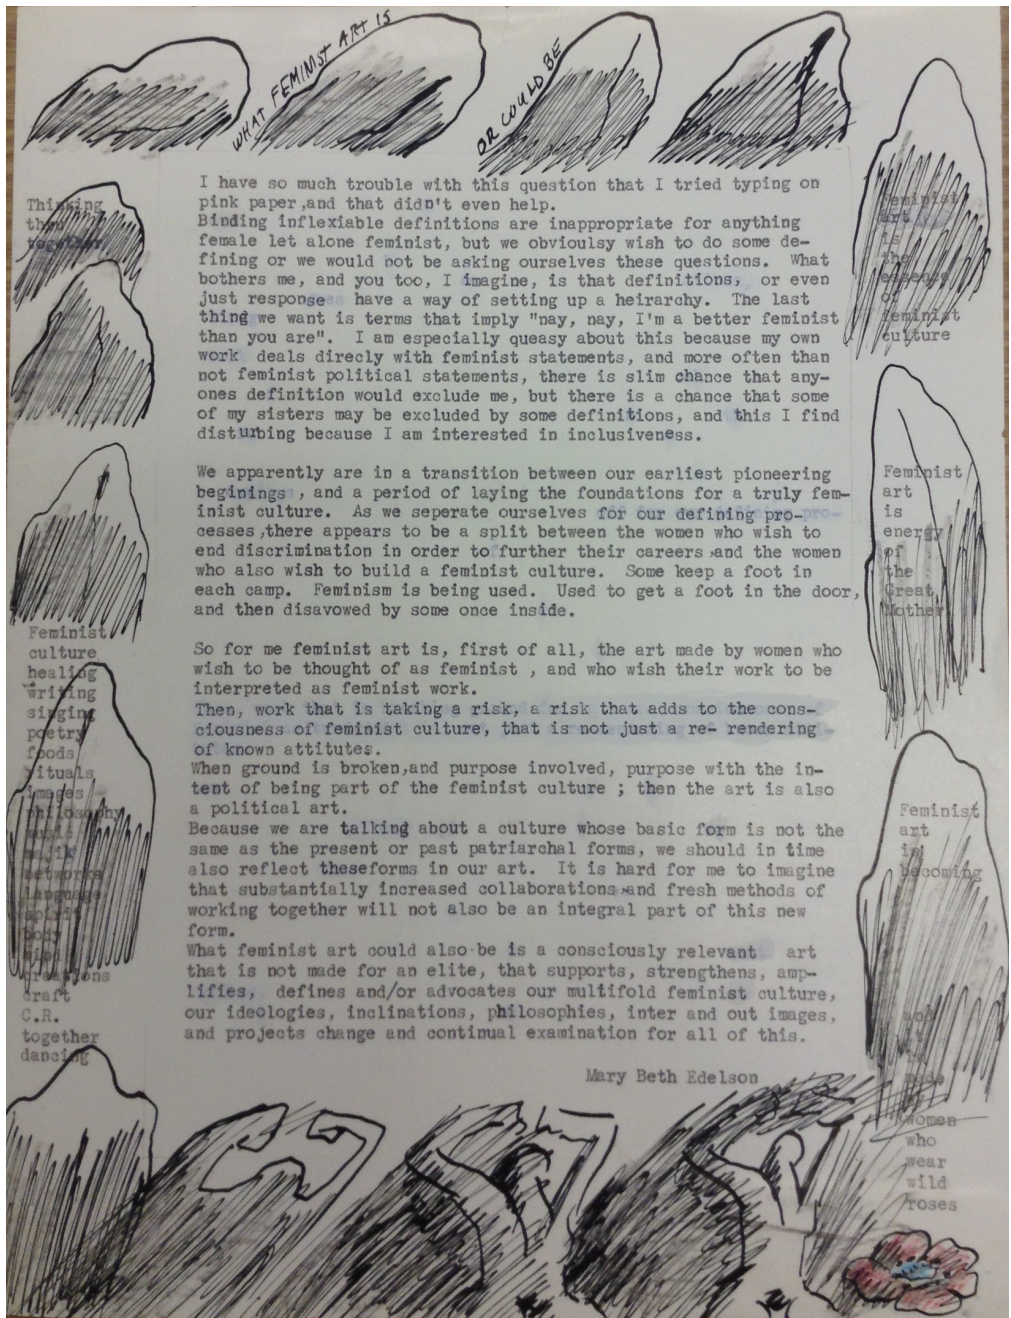 WHAT FEMINIST ART IS
OR COULD BE
I have so much trouble with this question that I tried typing on
pink paper ,and that didn't even help.
Binding inflexiable definitions are inappropriate for anything
female let alone feminist, but we obvioulsy wish to do some de-
fining or we would not be asking ourselves these questions.  What
bothers me, and you too, I imagine, is that definitions,  or even
just response   have a way of setting up a heirarchy.  The last
thing we want is terms that imply "nay, nay, I'm a better feminist
than you are".  I am especially queasy about this because my own
work  deals direcly with feminist statements, and more often than
not feminist political statements, there is slim chance that any-
ones definition would exclude me, but there is a chance that some
of my sisters may be excluded by some definitions, and this I find
disturbing because I am interested in inclusiveness.
We apparently are in a transition between our earliest pioneering
beginings , and a period of laying the foundations for a truly fem-
inist culture.  As we seperate ourselves for our defining pro-
cesses ,there appears to be a split between the women who wish to
end discrimination in order to further their careers ,and the women
who also wish to build a feminist culture.  Some keep a foot in
each camp.  Feminism is being used.  Used to get a foot in the door,
and then disavowed by some once inside.
So for me feminist art is, first of all, the art made by women who
wish to be thought of as feminist , and who wish their work to be
interpreted as feminist work.
Then, work that is taking a risk, a risk that adds to the cons-
ciousness of feminist culture, that is not just a re- rendering
of known attitutes.
When ground is broken,and purpose involved, purpose with the in-
tent of being part of the feminist culture ; then the art is also
a political art.
Because we are talking about a culture whose basic form is not the
same as the present or past patriarchal forms, we should in time
also reflect theseforms in our art.  It is hard for me to imagine
that substantially increased collaborations ,and fresh methods of
working together will not also be an integral part of this new
form.
What feminist art could also be is a consciously relevant   art
that is not made for an elite, that supports, strengthens, amp-
lifies,  defines and/or advocates our multifold feminist culture,
our ideologies, inclinations, philosophies, inter and out images,
and projects change and continual examination for all of this.
Mary Beth Edelson
Thinking
thru
together
Feminist
culture
healing
writing
singing
poetry
foods
rituals
images
philosophy
music
majik
networks
language
spirit
body
mind
creations
craft
C.R.
together
dancing
Feminist
art
is
the
essence
of
feminist
culture
Feminist
art
is
energy
of
the
Great
Mother
Feminist
art
is
becoming
and
it
is
made
by
women
who
wear
wild
roses